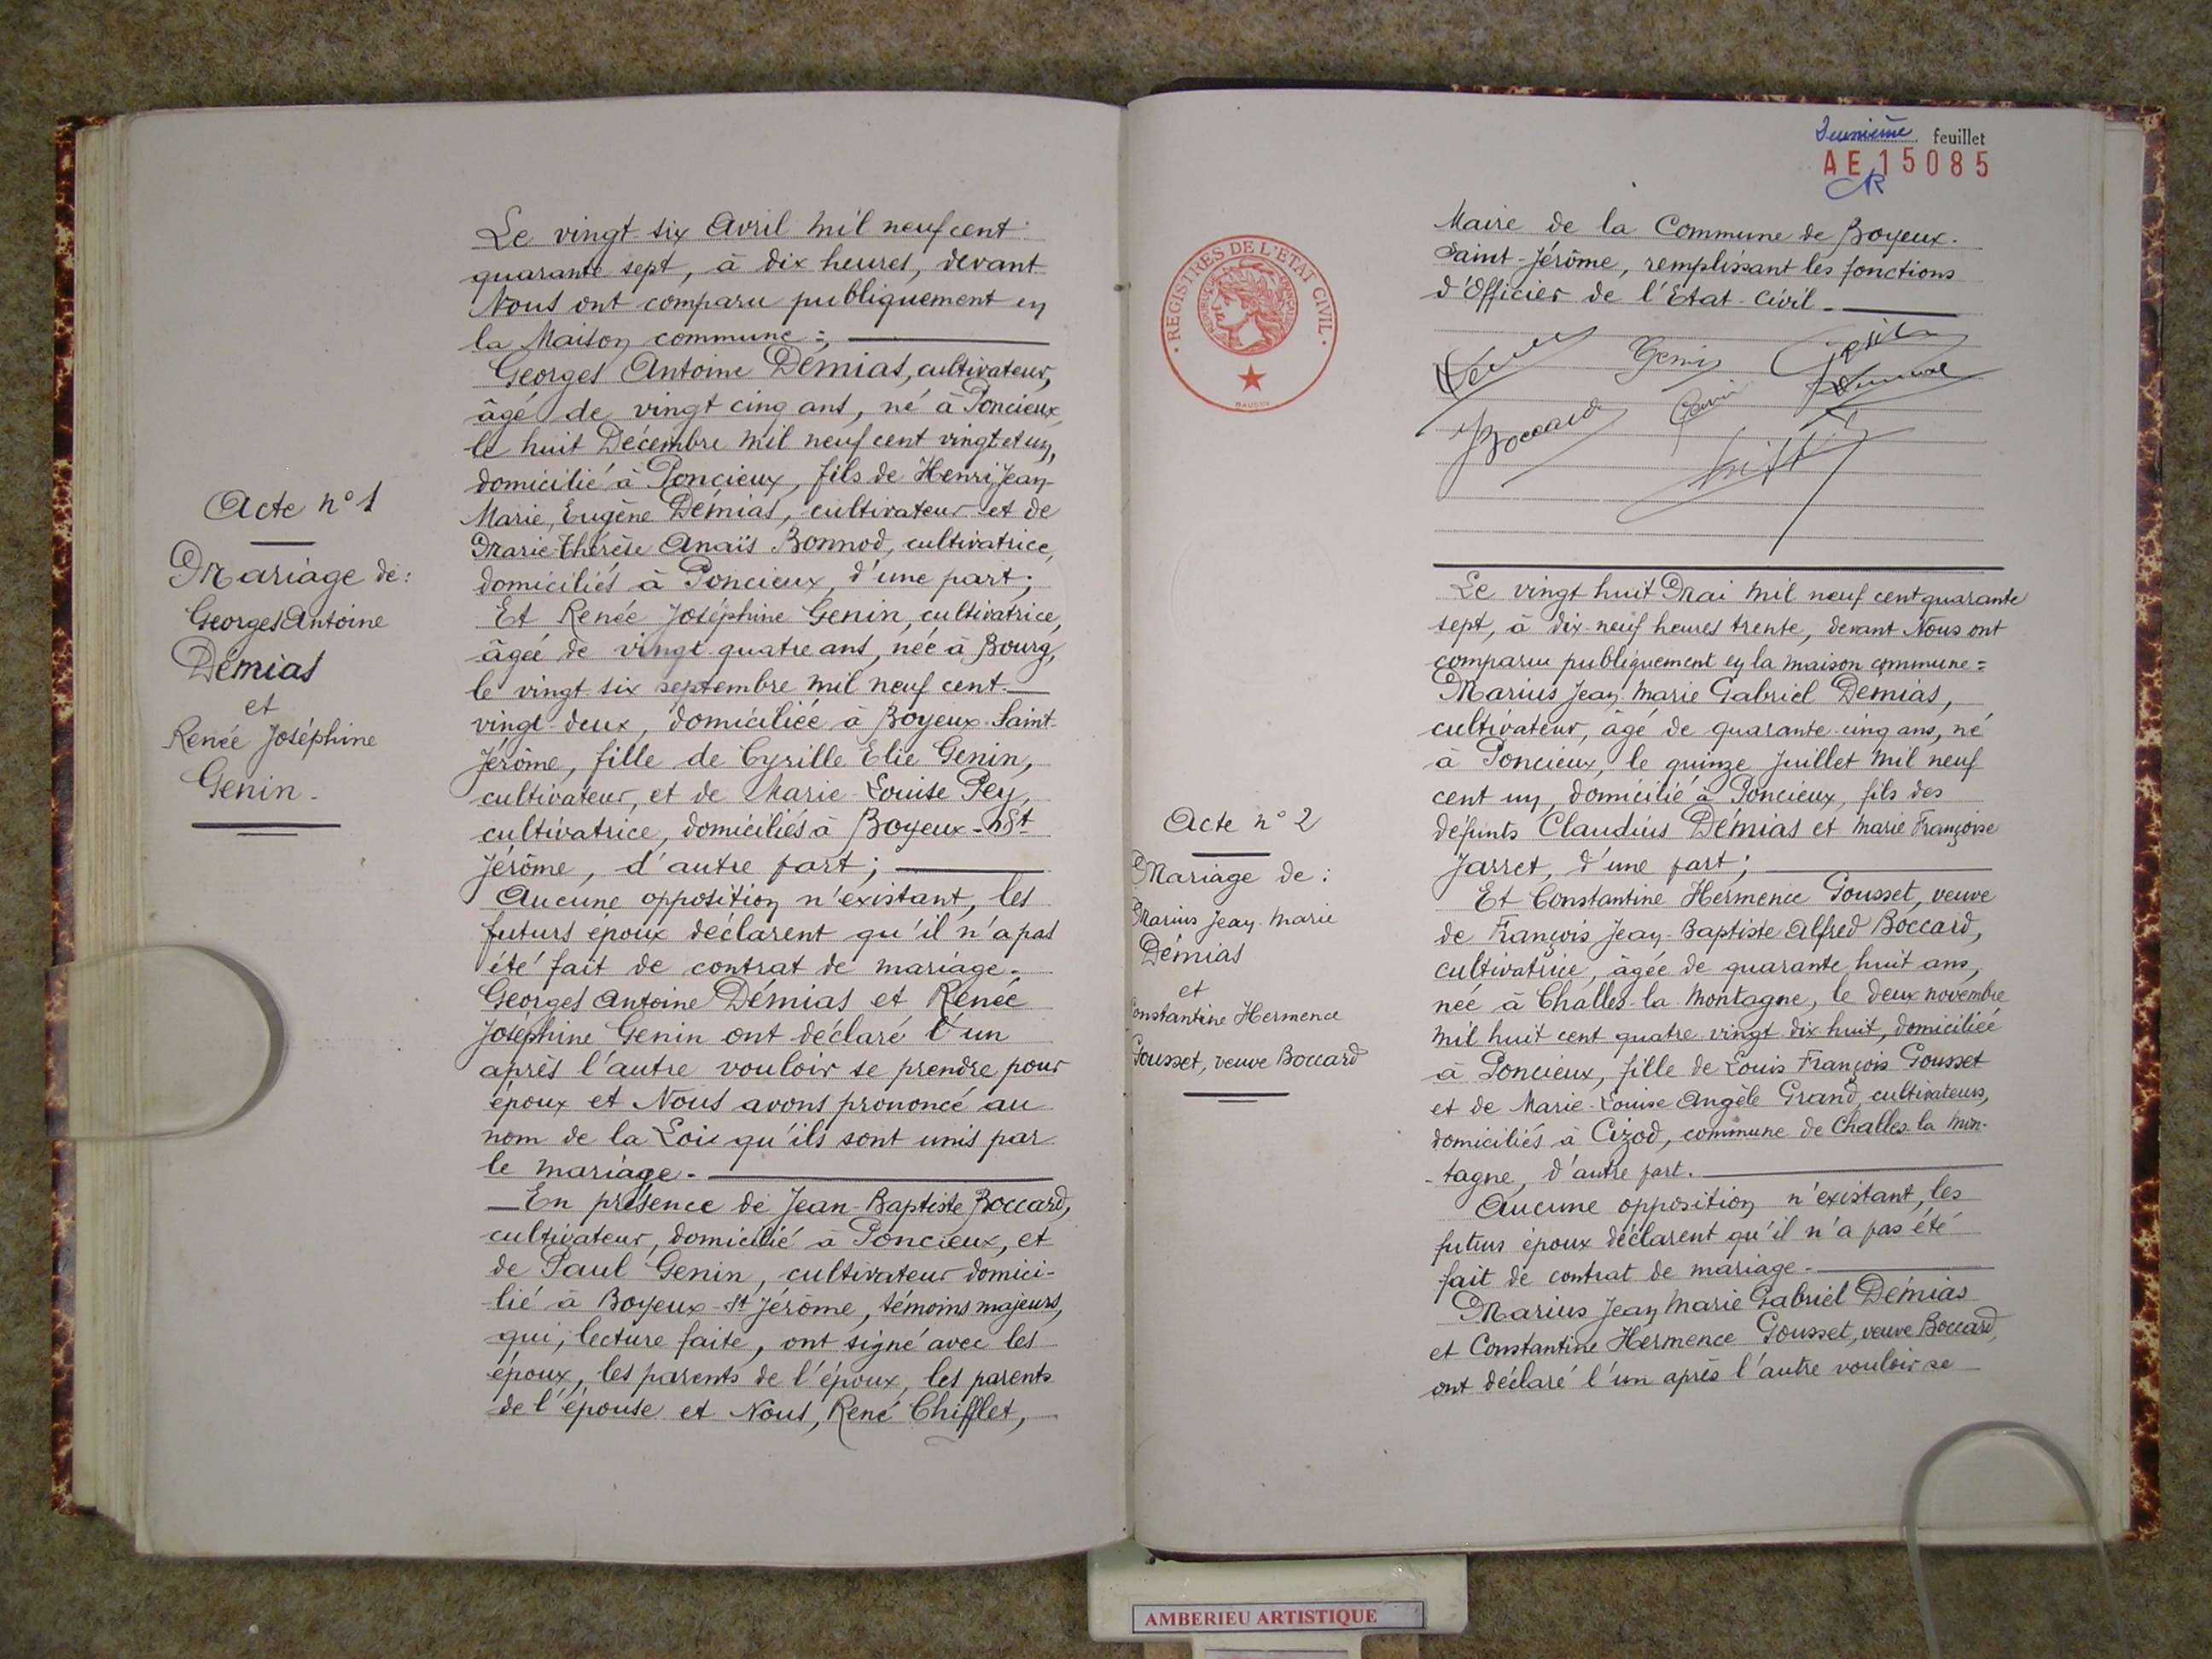 Acte n° 1
Mariage de :
Georges Antoine
Démias
et
Renée Joséphine
Genin.
Le vingt-six Avril mil neuf cent
quarante sept, à dix heures, devant
Nous ont comparu publiquement en
la Maison commune :
Georges Antoine Démias, cultivateur,
âgé de vingt cinq ans, né à Poncieux,
le huit Décembre mil neuf cent vingt et un,
domicilié à Poncieux, fils de Henri Jean
Marie, Eugène Démias, cultivateur et de
Marie-Thérèse Anaïs Bonnod, cultivatrice,
domiciliés à Poncieux, d'une part ;
Et Renée Joséphine Genin, cultivatrice,
âgée de vingt-quatre ans, née à Bourg,
le vingt-six septembre mil neuf cent
vingt-deux, domiciliée à Boyeux-Saint-
Jérôme, fille de Cyrille Elie Genin,
cultivateur, et de Marie-Louise Pey,
cultivatrice, domiciliés à Boyeux-St
Jérôme, d'autre part ;
Aucune opposition n'existant, les
futurs époux déclarent qu'il n'a pas
été fait de contrat de mariage.
Georges Antoine Démias et Renée
Joséphine Genin ont déclaré l'un
après l'autre vouloir se prendre pour
époux et Nous avons prononcé au
nom de la Loi qu'ils sont unis par
le mariage.
En présence de Jean-Baptiste Boccard,
cultivateur, domicilié à Poncieux, et
de Paul Genin, cultivateur domici-
lié à Boyeux-St Jérôme, témoins majeurs,
qui, lecture faite, ont signé avec les
époux, les parents de l'époux, les parents
de l'épouse et Nous, René Chifflet,
Deuxième feuillet
AE 15085
REGISTRES DE L'ETAT CIVIL
Maire de la Commune de Boyeux-
Saint-Jérôme, remplissant les fonctions
d'Officier de l'Etat-Civil.
Genin
JBoccard
Genin
Acte n° 2
Mariage de :
Marius Jean Marie
Démias
et
Constantine Hermence
Gousset, veuve Boccard
Le vingt huit Mai mil neuf cent quarante
sept, à dix-neuf heures trente, devant Nous ont
comparu publiquement en la maison commune :
Marius Jean Marie Gabriel Démias,
cultivateur, âgé de quarante-cinq ans, né
à Poncieux, le quinze Juillet mil neuf
cent un, domicilié à Poncieux, fils des
défunts Claudius Démias et Marie Françoise
Jarret, d'une part ;
Et Constantine Hermence Gousset, veuve
de François Jean-Baptiste Alfred Boccard,
cultivatrice, âgée de quarante huit ans,
née à Challes-la-Montagne, le deux novembre
mil huit cent quatre vingt-dix-huit, domiciliée
à Poncieux, fille de Louis François Gousset
et de Marie-Louise Angèle Grand, cultivateurs,
domiciliés à Cizod, commune de Challes-la-Mon-
-tagne, d'autre part.
Aucune opposition n'existant, les
futurs époux déclarent qu'il n'a pas été
fait de contrat de mariage.
Marius Jean Marie Gabriel Démias
et Constantine Hermence Gousset, veuve Boccard,
ont déclaré l'un après l'autre vouloir se
AMBERIEU ARTISTIQUE